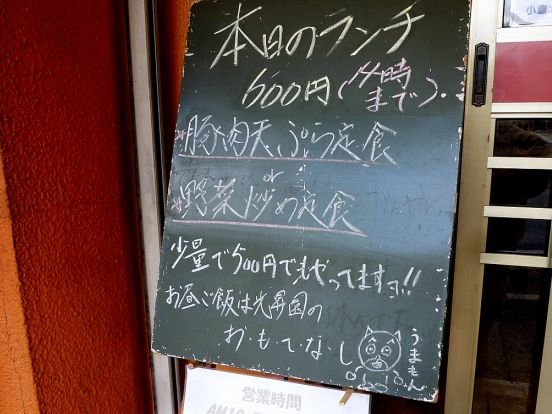 本日のランチ
600円(14時まで)
豚肉天ぷら定食
or
野菜炒め定食
少量で500円でもやってますヨ!!
お昼ご飯は光昇園の
おもてなし
うまもん
営業時間